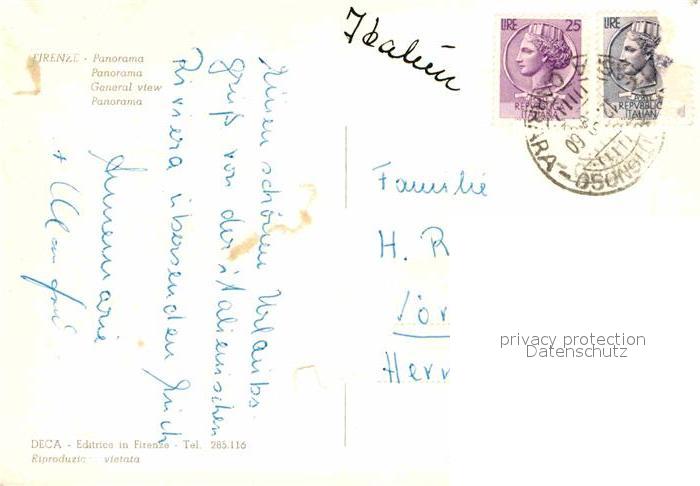 FIRENZE - Panorama
Panorama
General view
Panorama
Italien
LIRE 25
LIRE
REPUBBLICA
ITALIANA
REPVBBLIC
ITALIAN
Einen schönen Urlaubs-
gruß von der italienischen
Riviera übersenden Euch
Annemarie
+
Familie
H. R
Lör
Herr
privacy protection
Datenschutz
DECA - Editrice in Firenze - Tel. 285.116
Riproduzio vietata